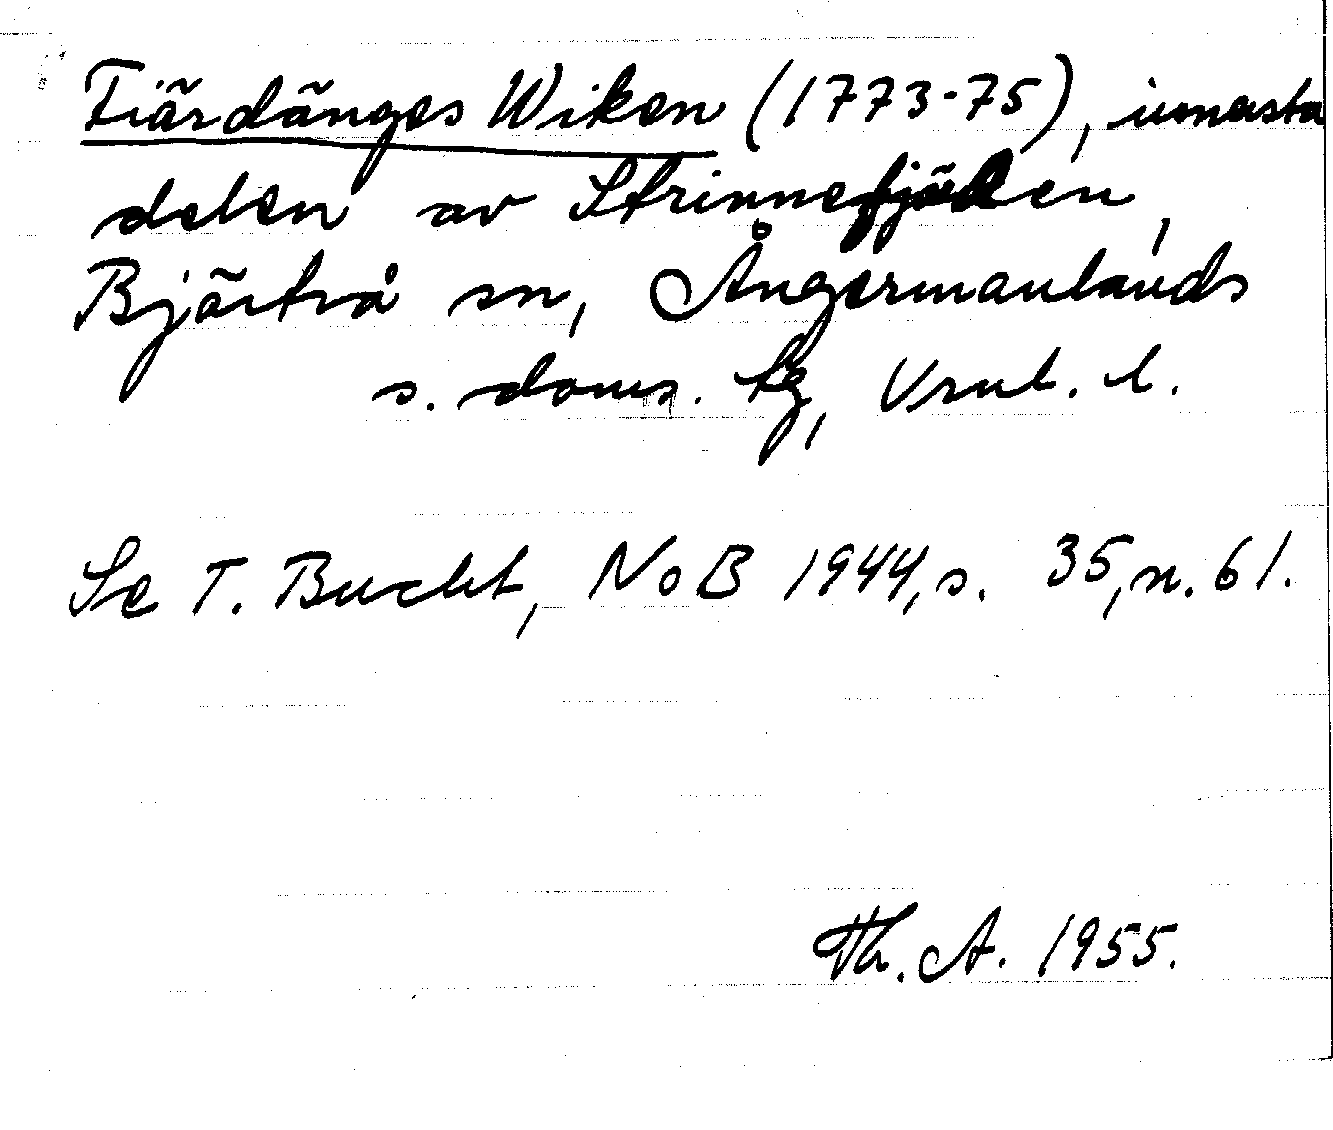 Fiärdänges Wiken (1773-75), innersta
delen av Strinnefjärden,
Bjärtrå sn, Ångermanlands
s. doms. tg, Vrnl. l.
Se T. Bucht, NoB 1944, s. 35, n. 61.
Th. A. 1955.